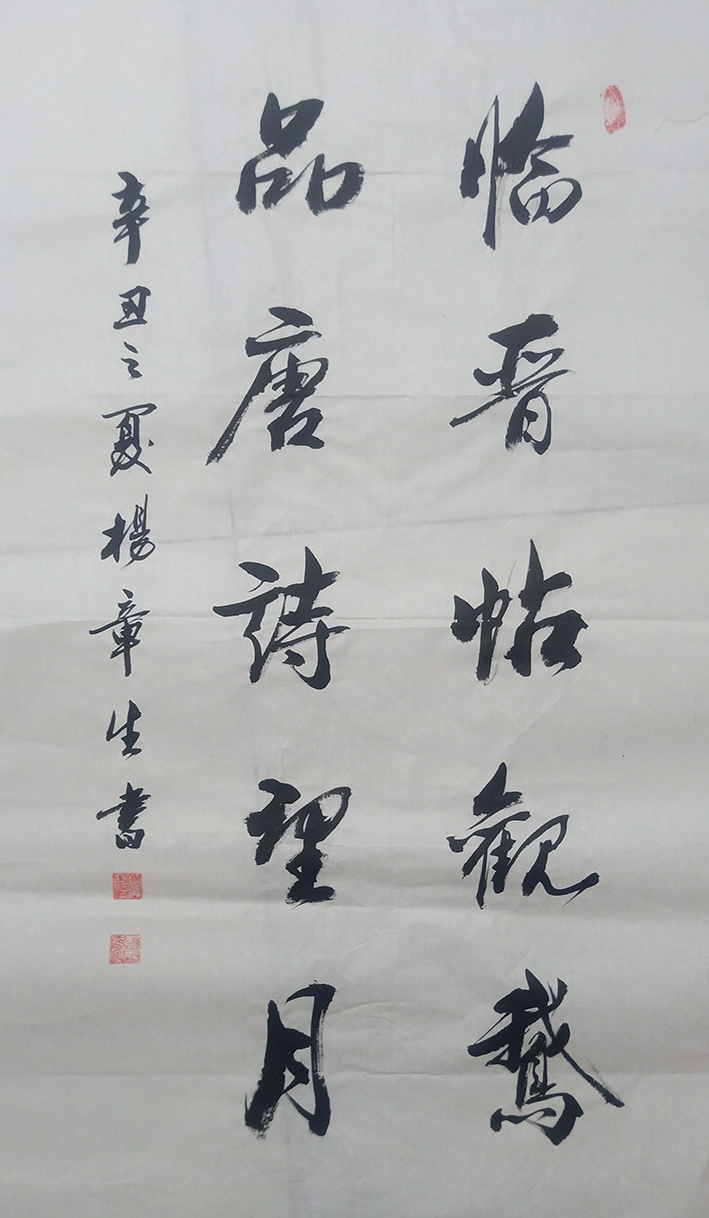 临晋帖觀鵝
品唐詩望月
辛丑之夏楊章生書